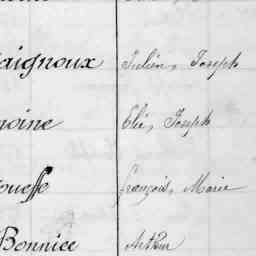 aignoux Julien, Joseph
moine Elie, Joseph
oueffe François, Marie
Bonniec Arthur